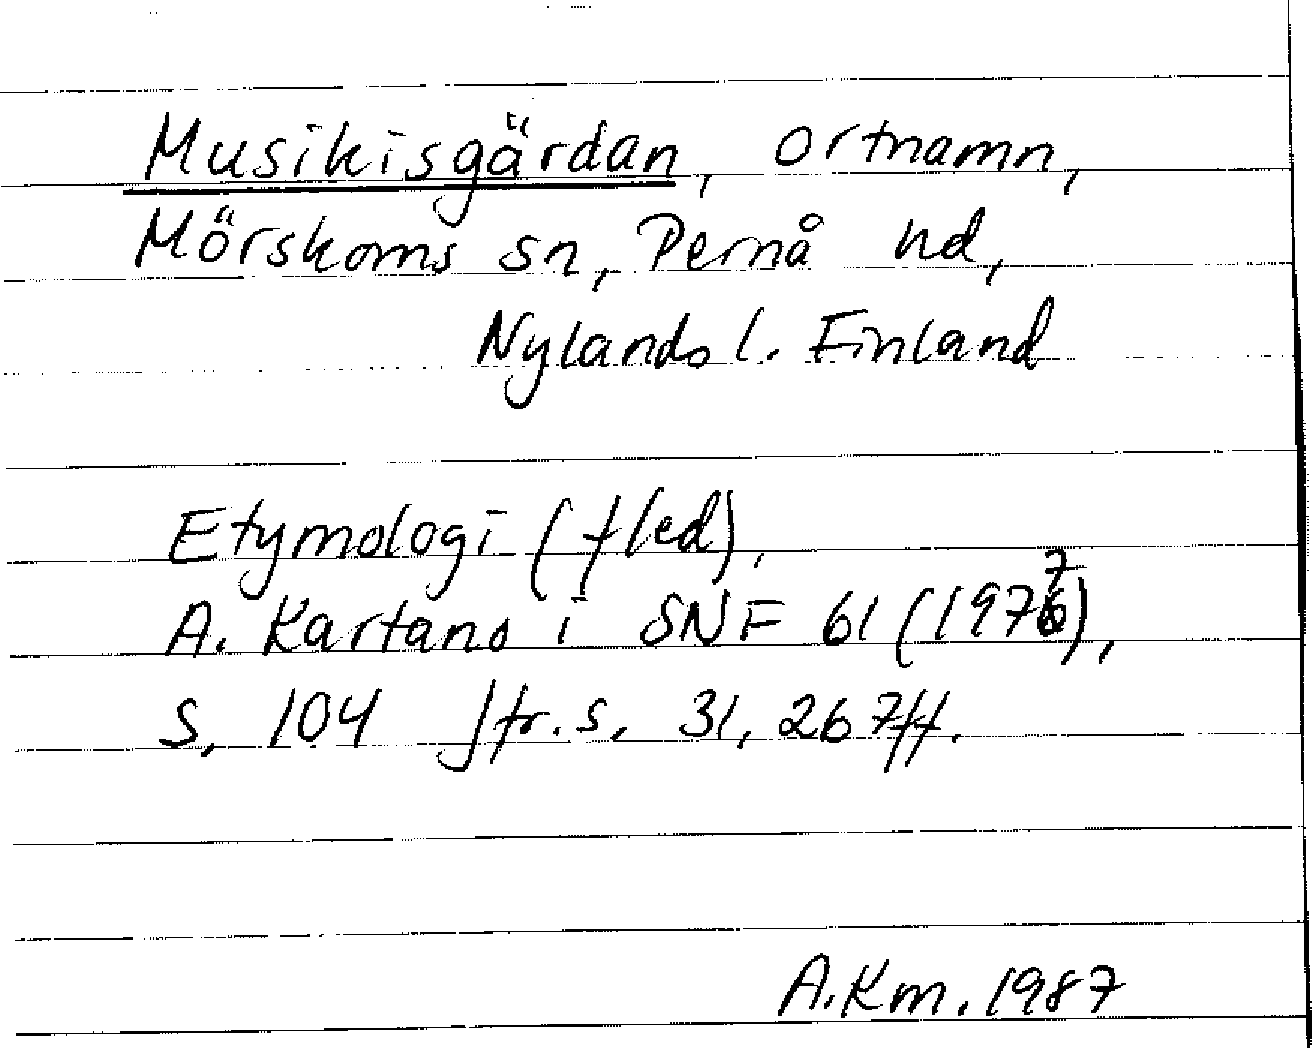 Musikisgärdan, ortnamn,
Mörskoms sn, Pernå hd,
Nylands l. Finland
Etymologi (fled),
A. Kartano i SNF 61 (1977),
s, 104 Jfr. s, 31, 267ff.
A.Km. 1987